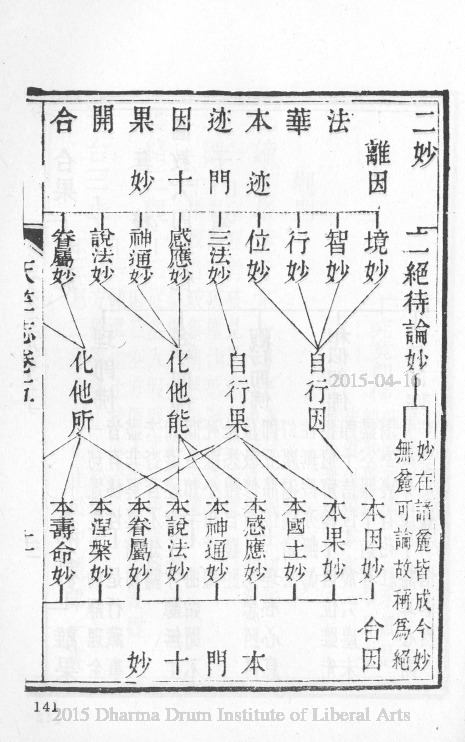 二妙 二絕待論妙
妙在諸麤皆成今妙
無麤可論故稱為絕
法華本迹因果開合
離因
迹門十妙
境妙
智妙
行妙
位妙
三法妙
感應妙
神通妙
說法妙
眷屬妙
自行因
自行果
化他能
化他所
本因妙
本果妙
本國土妙
本感應妙
本神通妙
本說法妙
本眷屬妙
本涅槃妙
本壽命妙
合因
本門十妙
志卷
2015-04-16
141
2015 Dharma Drum Institute of Liberal Arts